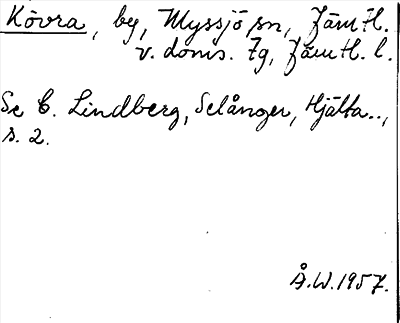 Kövra, by, Myssjö sn, Jämtl.
v. doms. tg, Jämtl. l.
Se C. Lindberg, Selånger, Hjälta..,
s. 2.
Å.W. 1957.